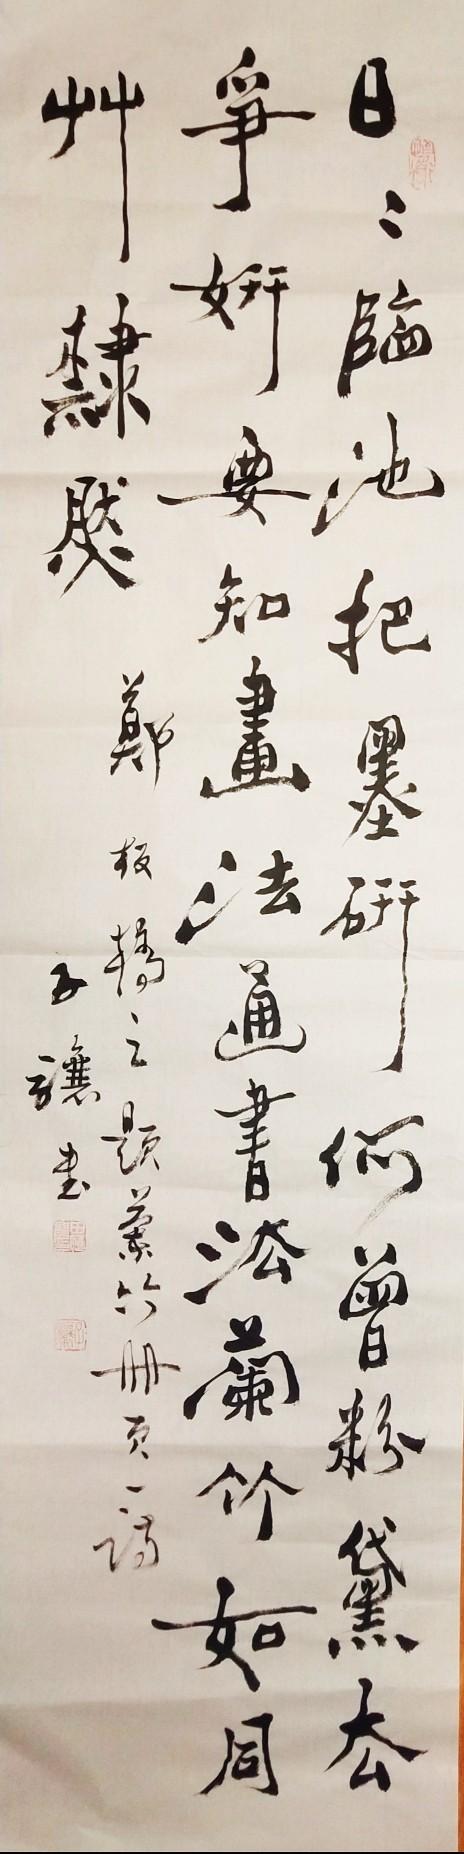 日〻臨池把墨研何曾粉黛去
爭妍要知畫法通書法蘭竹如同
艸隸然
鄭板橋之題蘭竹冊頁一詩
子驤書